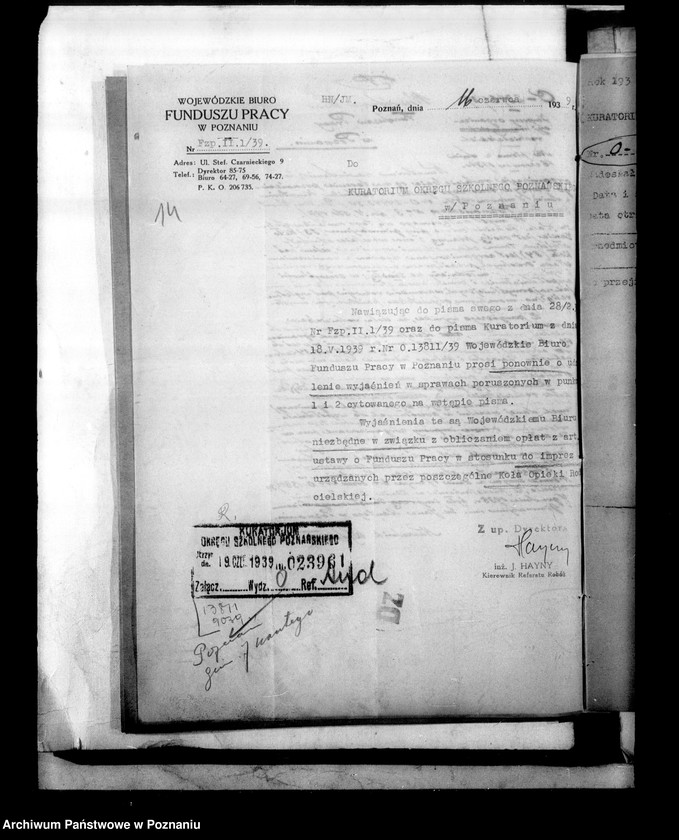 WOJEWÓDZKIE BIURO
FUNDUSZU PRACY
W POZNANIU
Nr Fzp.II.1/39.
Adres: Ul. Stef. Czarnieckiego 9
Telef.: Dyrektor 85-75
Biuro 64-27, 69-56, 74-27.
P. K. O. 206 735.
HN/JM.
Poznań, dnia 16 czerwca 1939 r.
14
Do
KURATORIUM OKRĘGU SZKOLNEGO POZNAŃSKI
w/Poznaniu
Nawiązując do pisma swego z dnia 28/2.
Nr Fzp.II.1/39 oraz do pisma Kuratorium z dni
18.V.1939 r.Nr O.13811/39 Wojewódzkie Biuro
Funduszu Pracy w Poznaniu prosi ponownie o u
lenie wyjaśnień w sprawach poruszonych w pun
1 i 2 cytowanego na wstępie pisma.
Wyjaśnienia te są Wojewódzkiemu Biuru
niezbędne w związku z obliczaniem opłat z art
ustawy o Funduszu Pracy w stosunku do imprez
urządzanych przez poszczególne Koła Opieki Ro
cielskiej.
Z up. Dyrektora
Hayny
inż. J. HAYNY
Kierownik Referatu Robót
KURATORJUM
OKRĘGU SZKOLNEGO POZNAŃSKIEGO
dn. 19 CZE 1939 023961
Załącz. Wydz. O Ref.
13811
9029
20
Rok 193
KURATORI
Nr. O-
Data i
przej
Archiwum Państwowe w Poznaniu